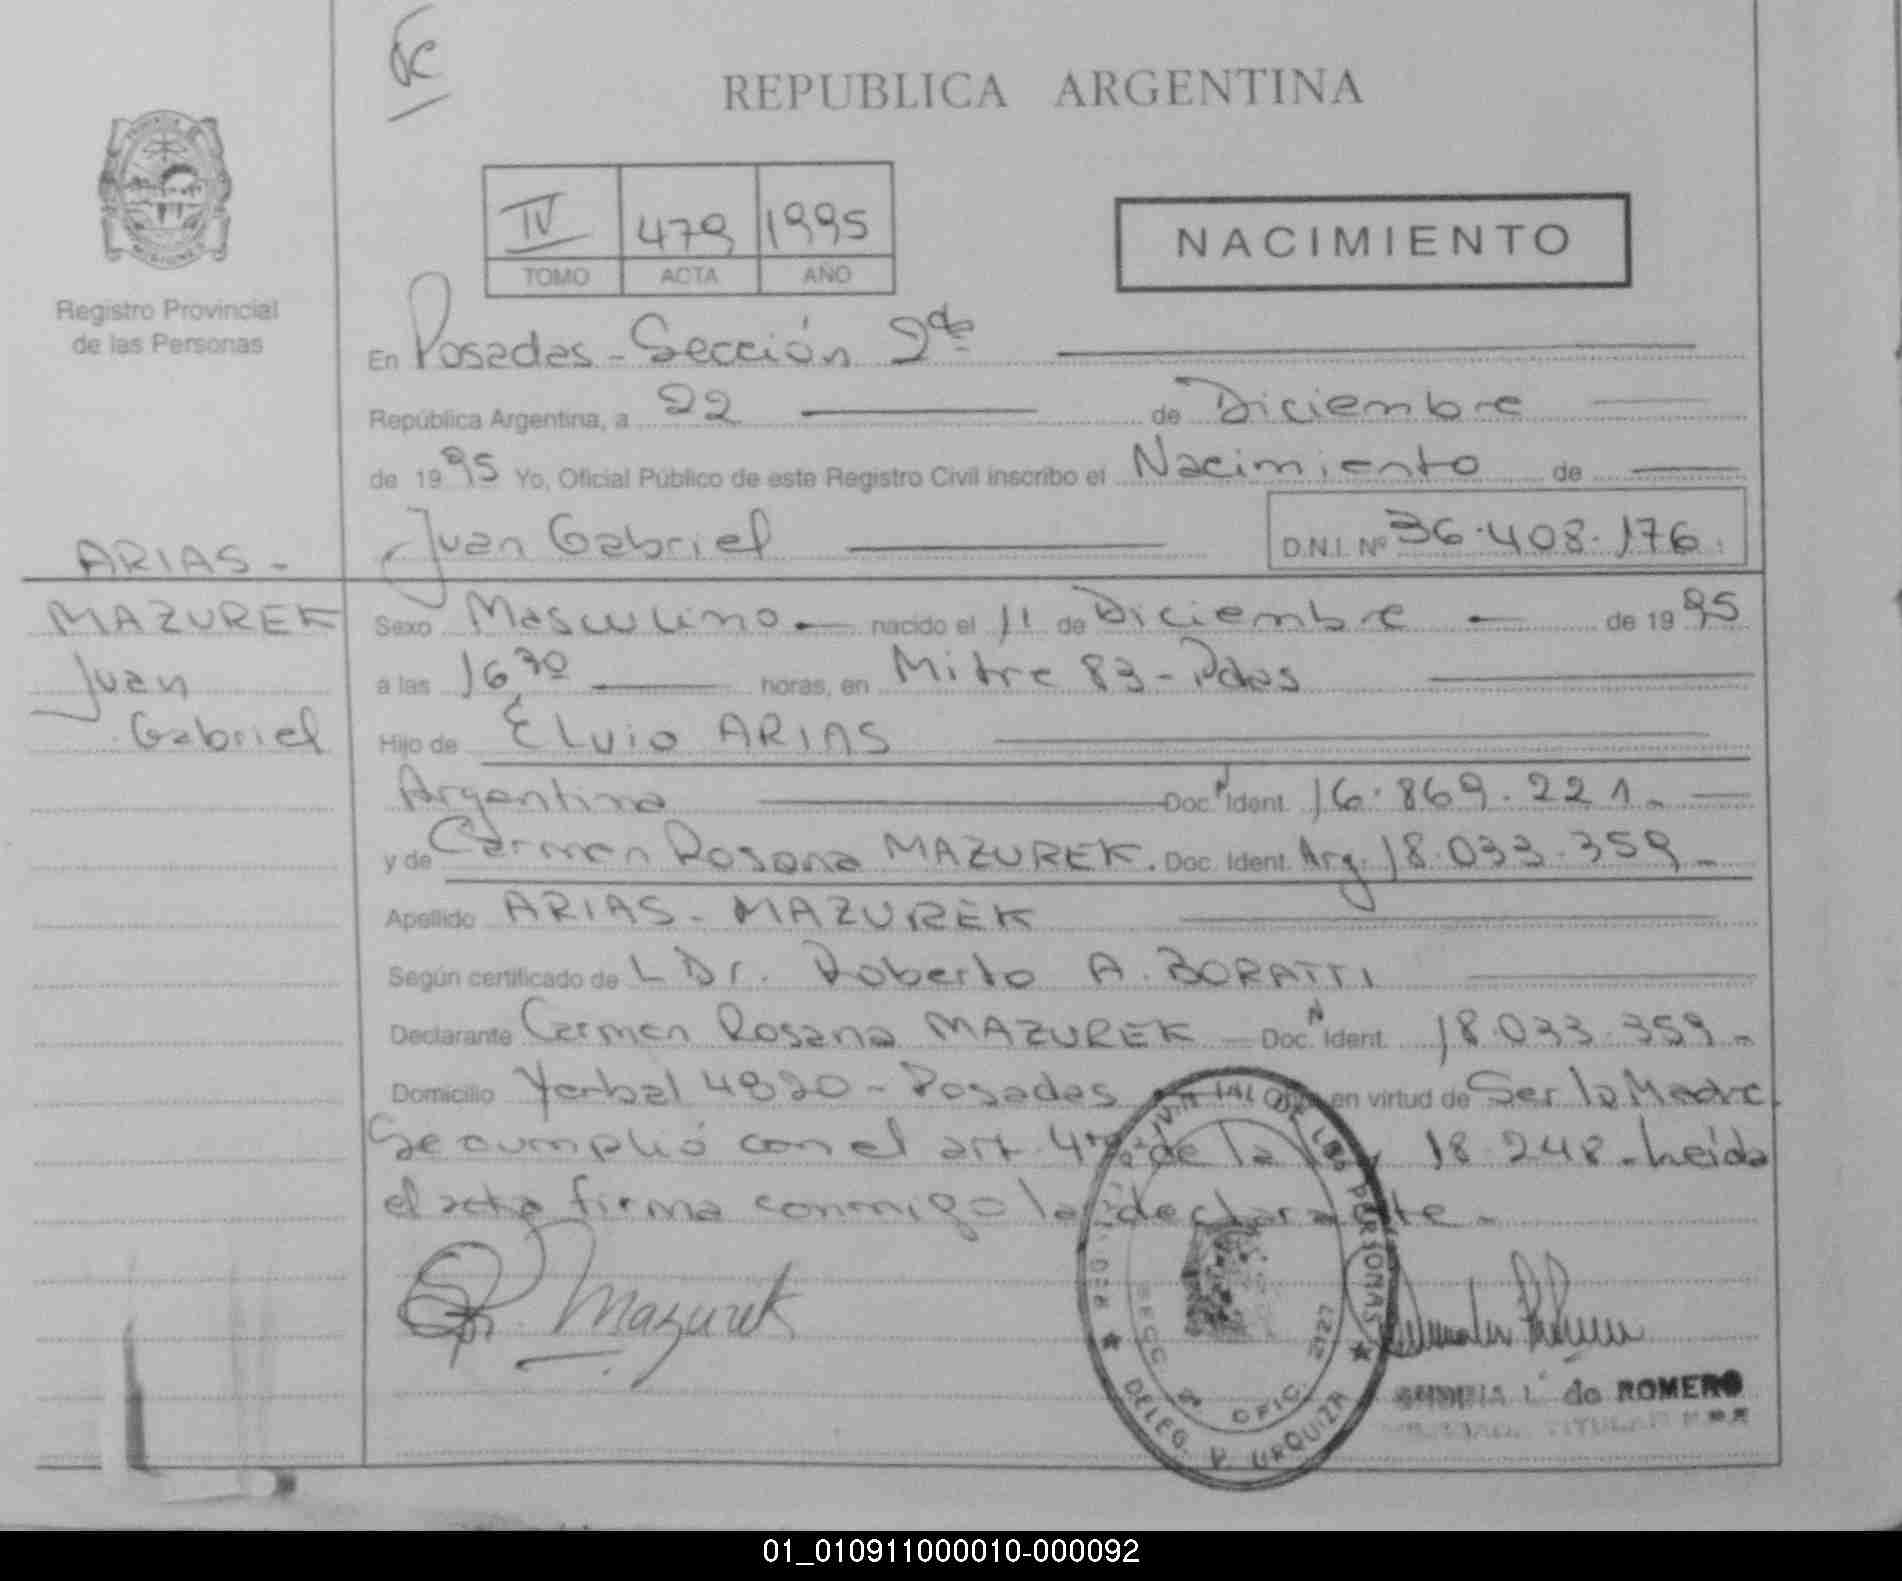 REPUBLICA ARGENTINA
IV 479 1995
TOMO ACTA AÑO
NACIMIENTO
Registro Provincial
de las Personas
En Posadas - Sección 2da
República Argentina, a 22 de Diciembre
de 1995 Yo, Oficial Público de este Registro Civil inscribo el Nacimiento de
Juan Gabriel D.N.I. Nº 36.408.176.
ARIAS -
MAZUREK
Juan
Gabriel
Sexo Masculino - nacido el 11 de Diciembre - de 1995
a las 16,30 horas, en Mitre 83 - Pdas
Hijo de Elvio ARIAS
Argentina Doc. N Ident. 16.869.221.-
y de Carmen Rosana MAZUREK. Doc. Ident. Arg. 18.033.359.-
Apellido ARIAS - MAZUREK
Según certificado de L Dr. Roberto A. BORATTI
Declarante Carmen Rosana MAZUREK - Doc. N Ident. 18.033.359.-
Domicilio Yerbal 4820 - Posadas en virtud de Ser la Madre.
Se cumplió con el art. 4to de la Ley 18.248 - Leída
el acta firma conmigo la declarante.-
Mazurek
DE LAS PERSONAS
SECC. 2ª OFIC. 2127
DELEG. V. URQUIZA
L. de ROMERO
TITULAR
01_010911000010-000092